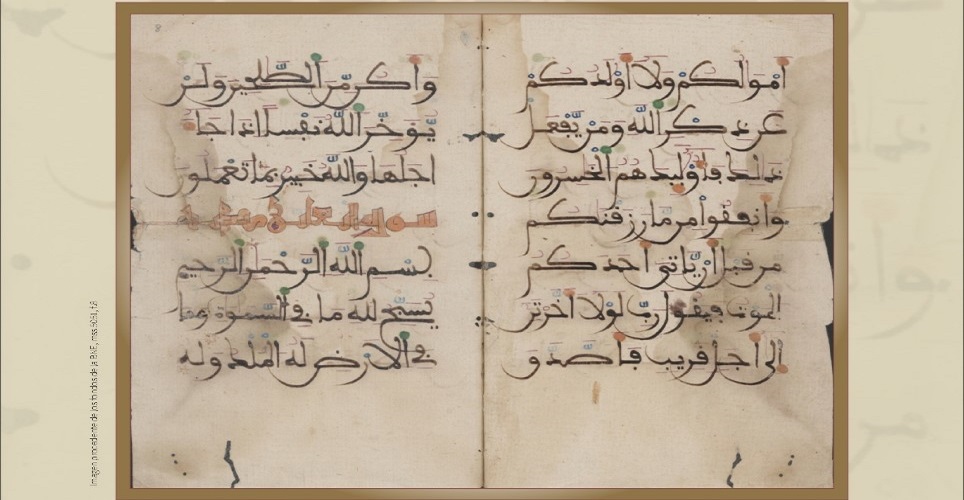 أمولكم ولا أولدكم
عن ذكر الله ومن يفعل
ذلك فأوليك هم الخسرون
وأنفقوا من ما رزقنكم
من قبل أن ياتي أحدكم
الموت فيقول رب لولا أخرتني
إلى أجل قريب فأصدق و
8
وأكن من الصلحين ولن
يوخر الله نفسا إذا جا
أجلها والله خبير بما تعملون
سورة
بسم الله الرحمن الرحيم
يسبح لله ما في السموت وما
في الأرض له الملك وله
Imagen procedente de los fondos de la BNE, mss